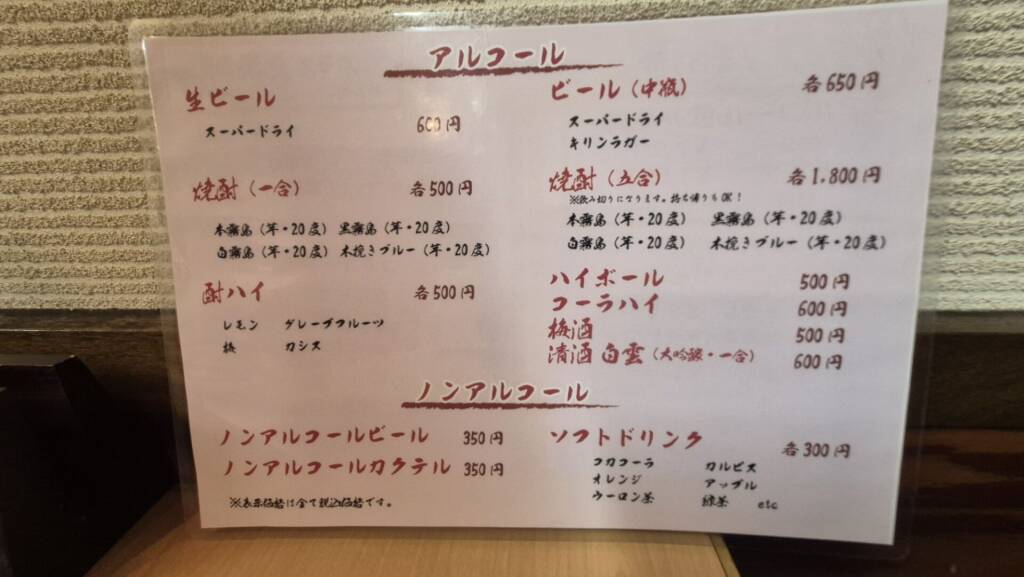 アルコール
生ビール
スーパードライ 600円
焼酎（一合） 各500円
本霧島（芋・20度） 黒霧島（芋・20度）
白霧島（芋・20度） 木挽きブルー（芋・20度）
酎ハイ 各500円
レモン グレープフルーツ
梅 カシス
ビール（中瓶） 各650円
スーパードライ
キリンラガー
焼酎（五合） 各1,800円
※飲み切りになります。持ち帰りもOK！
本霧島（芋・20度） 黒霧島（芋・20度）
白霧島（芋・20度） 木挽きブルー（芋・20度）
ハイボール 500円
コーラハイ 600円
梅酒 500円
清酒 白雲（大吟醸・一合） 600円
ノンアルコール
ノンアルコールビール 350円
ノンアルコールカクテル 350円
※表示価格は全て税込価格です。
ソフトドリンク 各300円
コカコーラ カルピス
オレンジ アップル
ウーロン茶 緑茶 etc